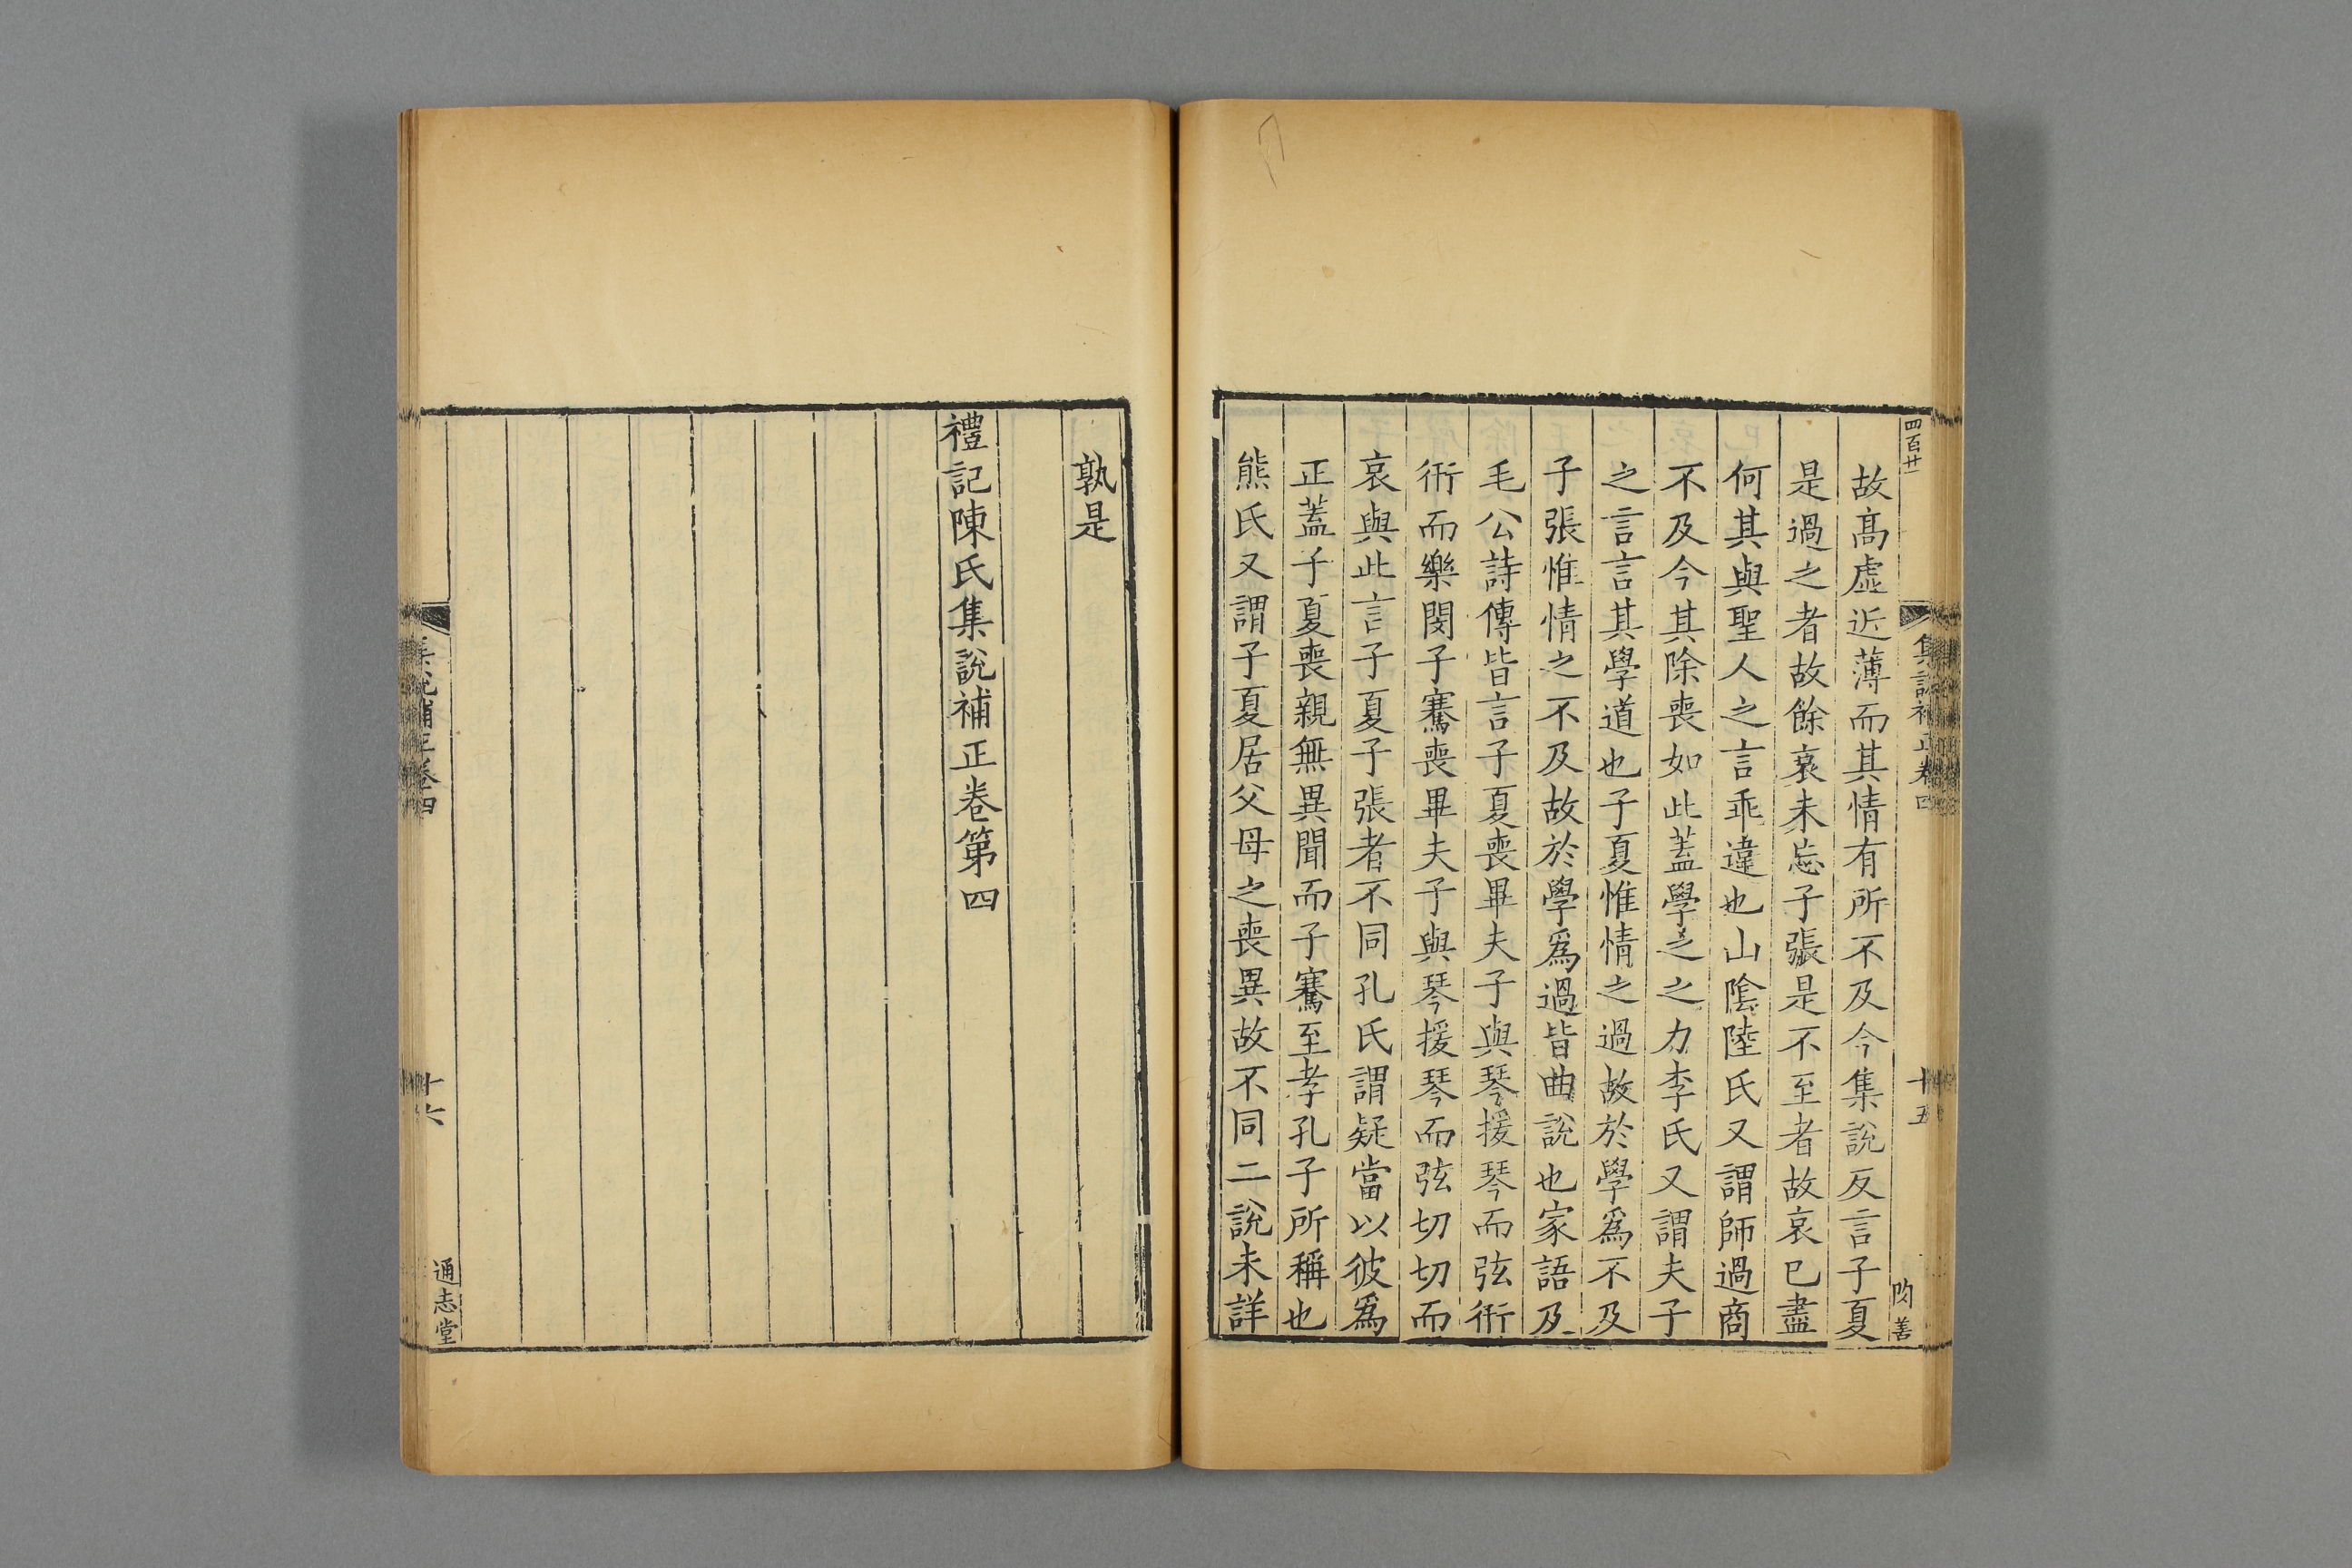 四百廿一
集說補正卷四
十五
善
故高虛近薄而其情有所不及今集說反言子夏
是過之者故餘哀未忘子張是不至者故哀已盡
何其與聖人之言乖違也山陰陸氏又謂師過商
不及今其除喪如此蓋學之之力李氏又謂夫子
之言言其學道也子夏惟情之過故於學爲不及
子張惟情之不及故於學爲過皆曲說也家語及
毛公詩傳皆言子夏喪畢夫子與琴援琴而弦衎
衎而樂閔子騫喪畢夫子與琴援琴而弦切切而
哀與此言子夏子張者不同孔氏謂疑當以彼爲
正蓋子夏喪親無異聞而子騫至孝孔子所稱也
熊氏又謂子夏居父母之喪異故不同二說未詳
孰是
禮記陳氏集說補正卷第四
集說補正卷四
十六
通志堂